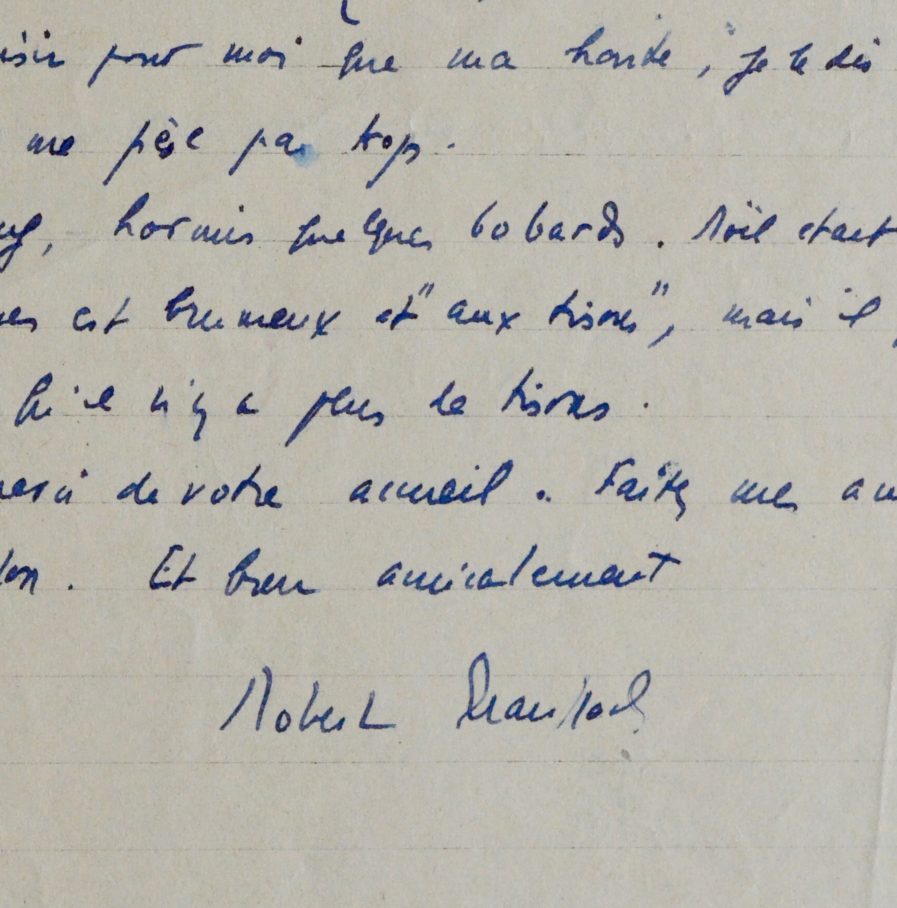 pour moi que ma honte, je le dis
me pèse pas trop.
hormis quelques bobards. Noël étant
est brumeux et "aux tisons", mais il
qu'il n'y a plus de tisons.
de votre accueil. Faites mes
Et bien amicalement
Robert